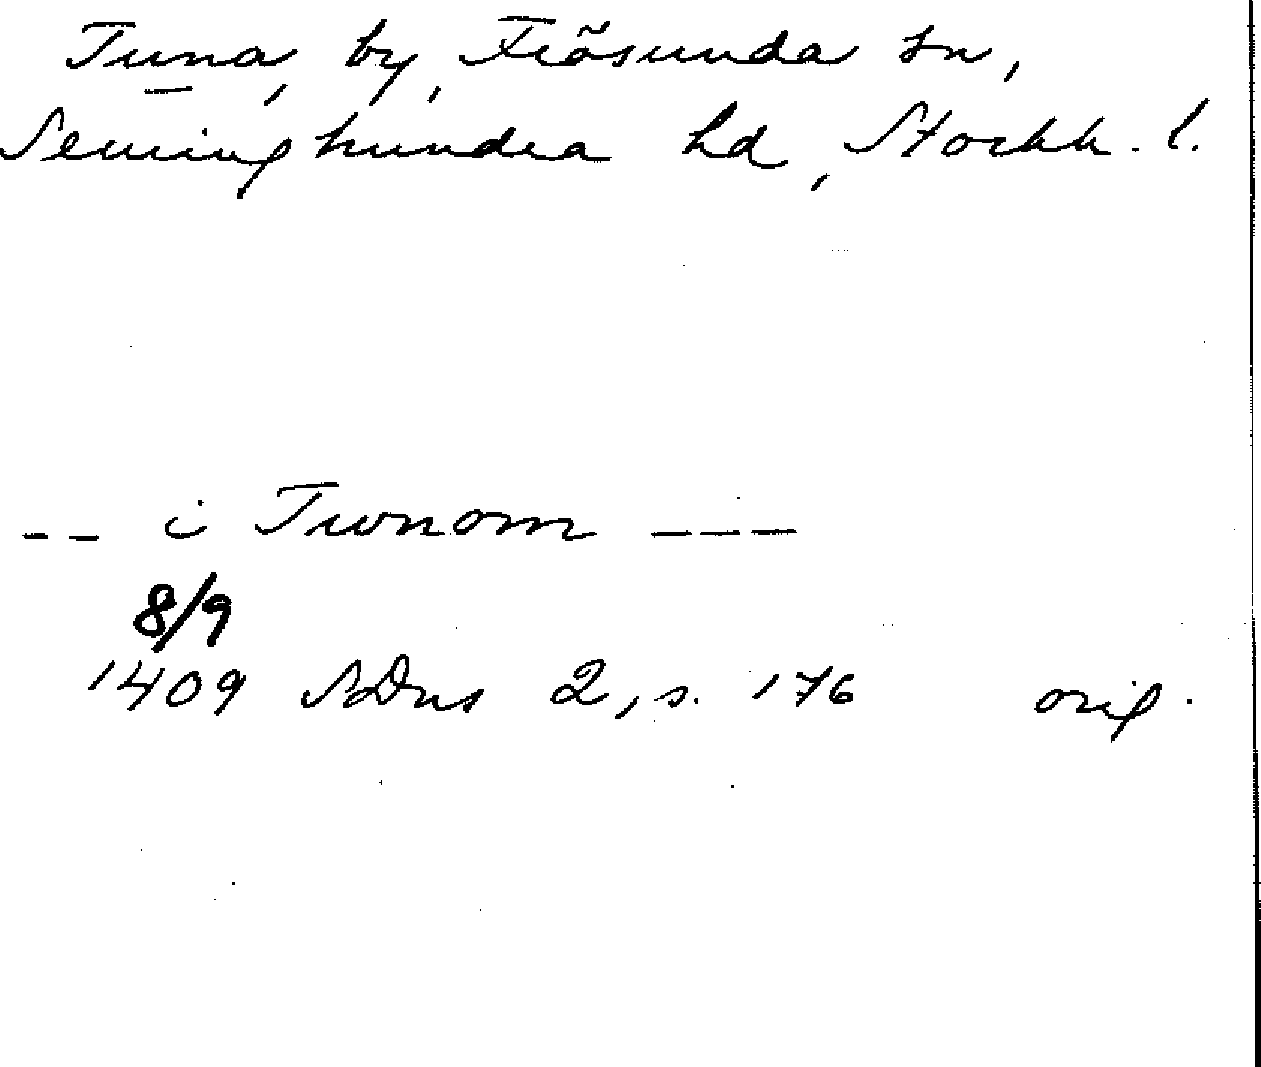 Tuna, by, Frösunda sn,
Seminghundra hd, Stockh. l.
-- i Twnom ---
8/9
1409 SDns 2, s. 176 orig.